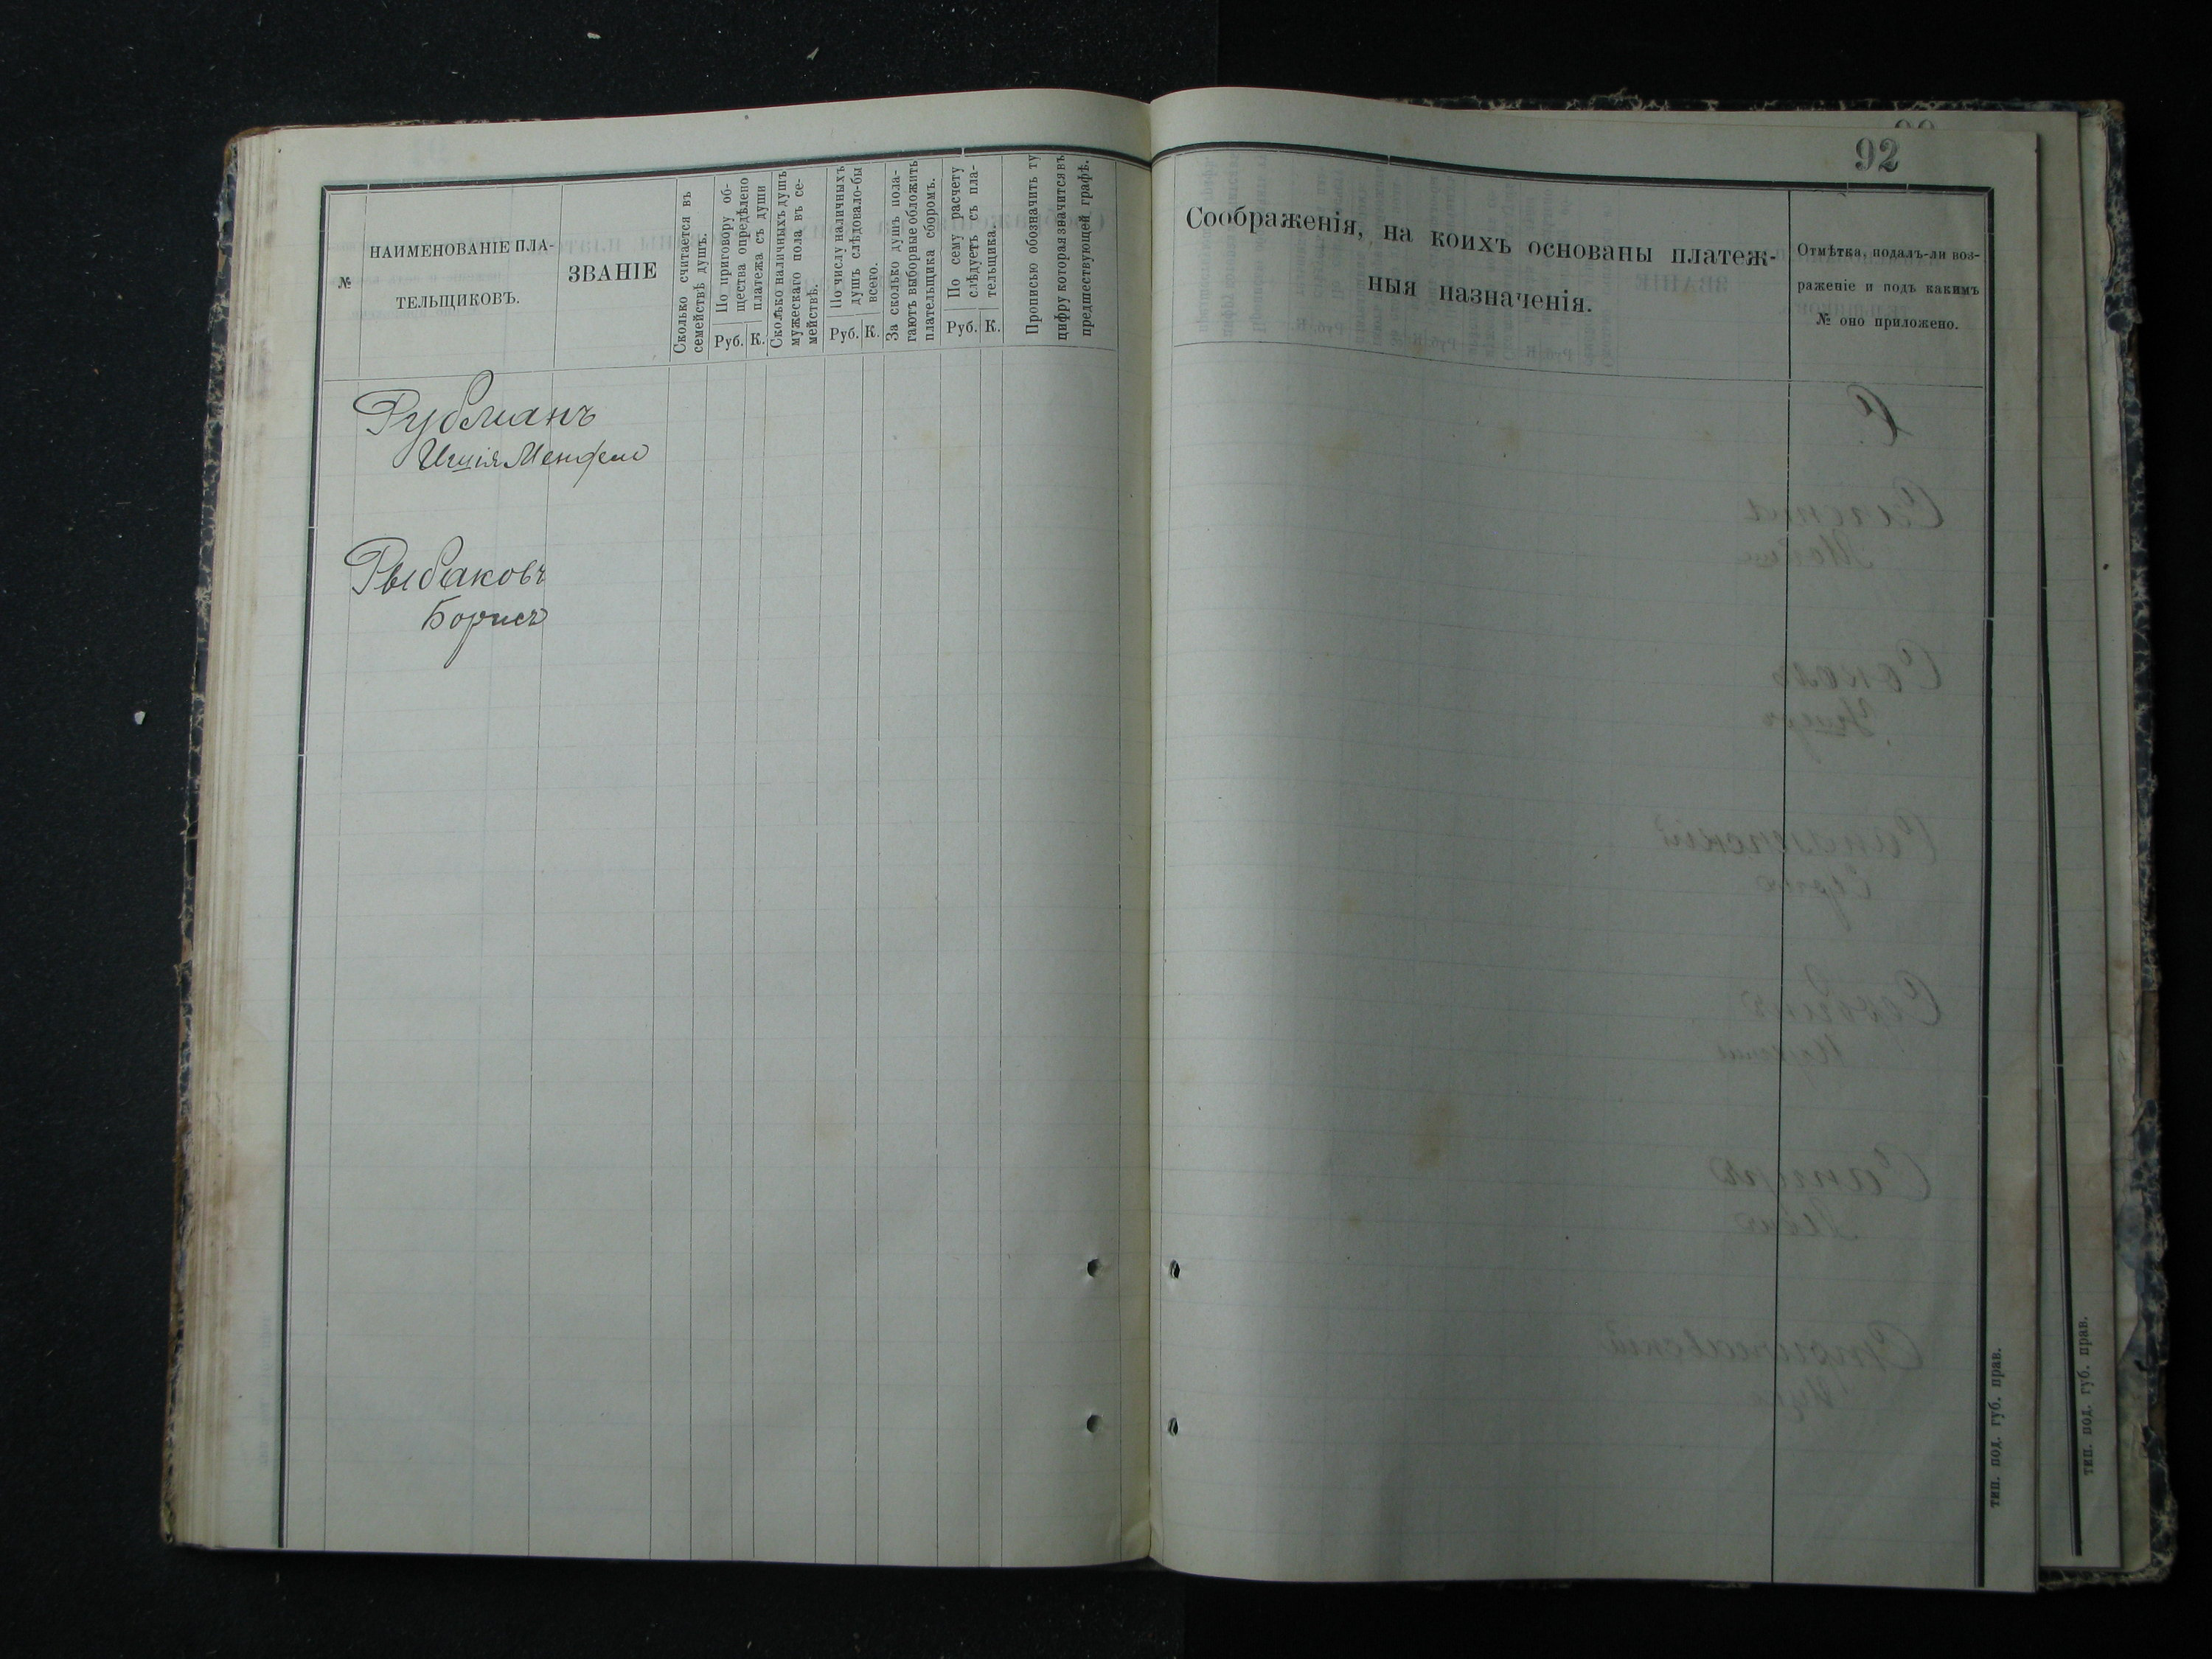 92
№
НАИМЕНОВАНІЕ ПЛА-
ТЕЛЬЩИКОВЪ.
ЗВАНІЕ
Сколько считается въ
семействѣ душъ.
По приговору об-
щества опредѣлено
платежа съ души
Руб. К.
Сколько наличныхъ душъ
мужескаго пола въ се-
мействѣ.
По числу наличныхъ
душъ слѣдовало-бы
всего.
Руб. К.
За сколько душъ пола-
гаютъ выборные обложить
плательщика сборомъ.
По сему расчету
слѣдуетъ съ пла-
тельщика.
Руб. К.
Прописью обозначить ту
цифру которая значится въ
предшествующей графѣ.
Рубманъ
Рыбаковъ
Борисъ
Соображенія, на коихъ основаны платеж-
ныя назначенія.
Отмѣтка, подалъ-ли воз-
раженіе и подъ какимъ
№ оно приложено.
тип. под. губ. прав.
тип. под. губ. прав.